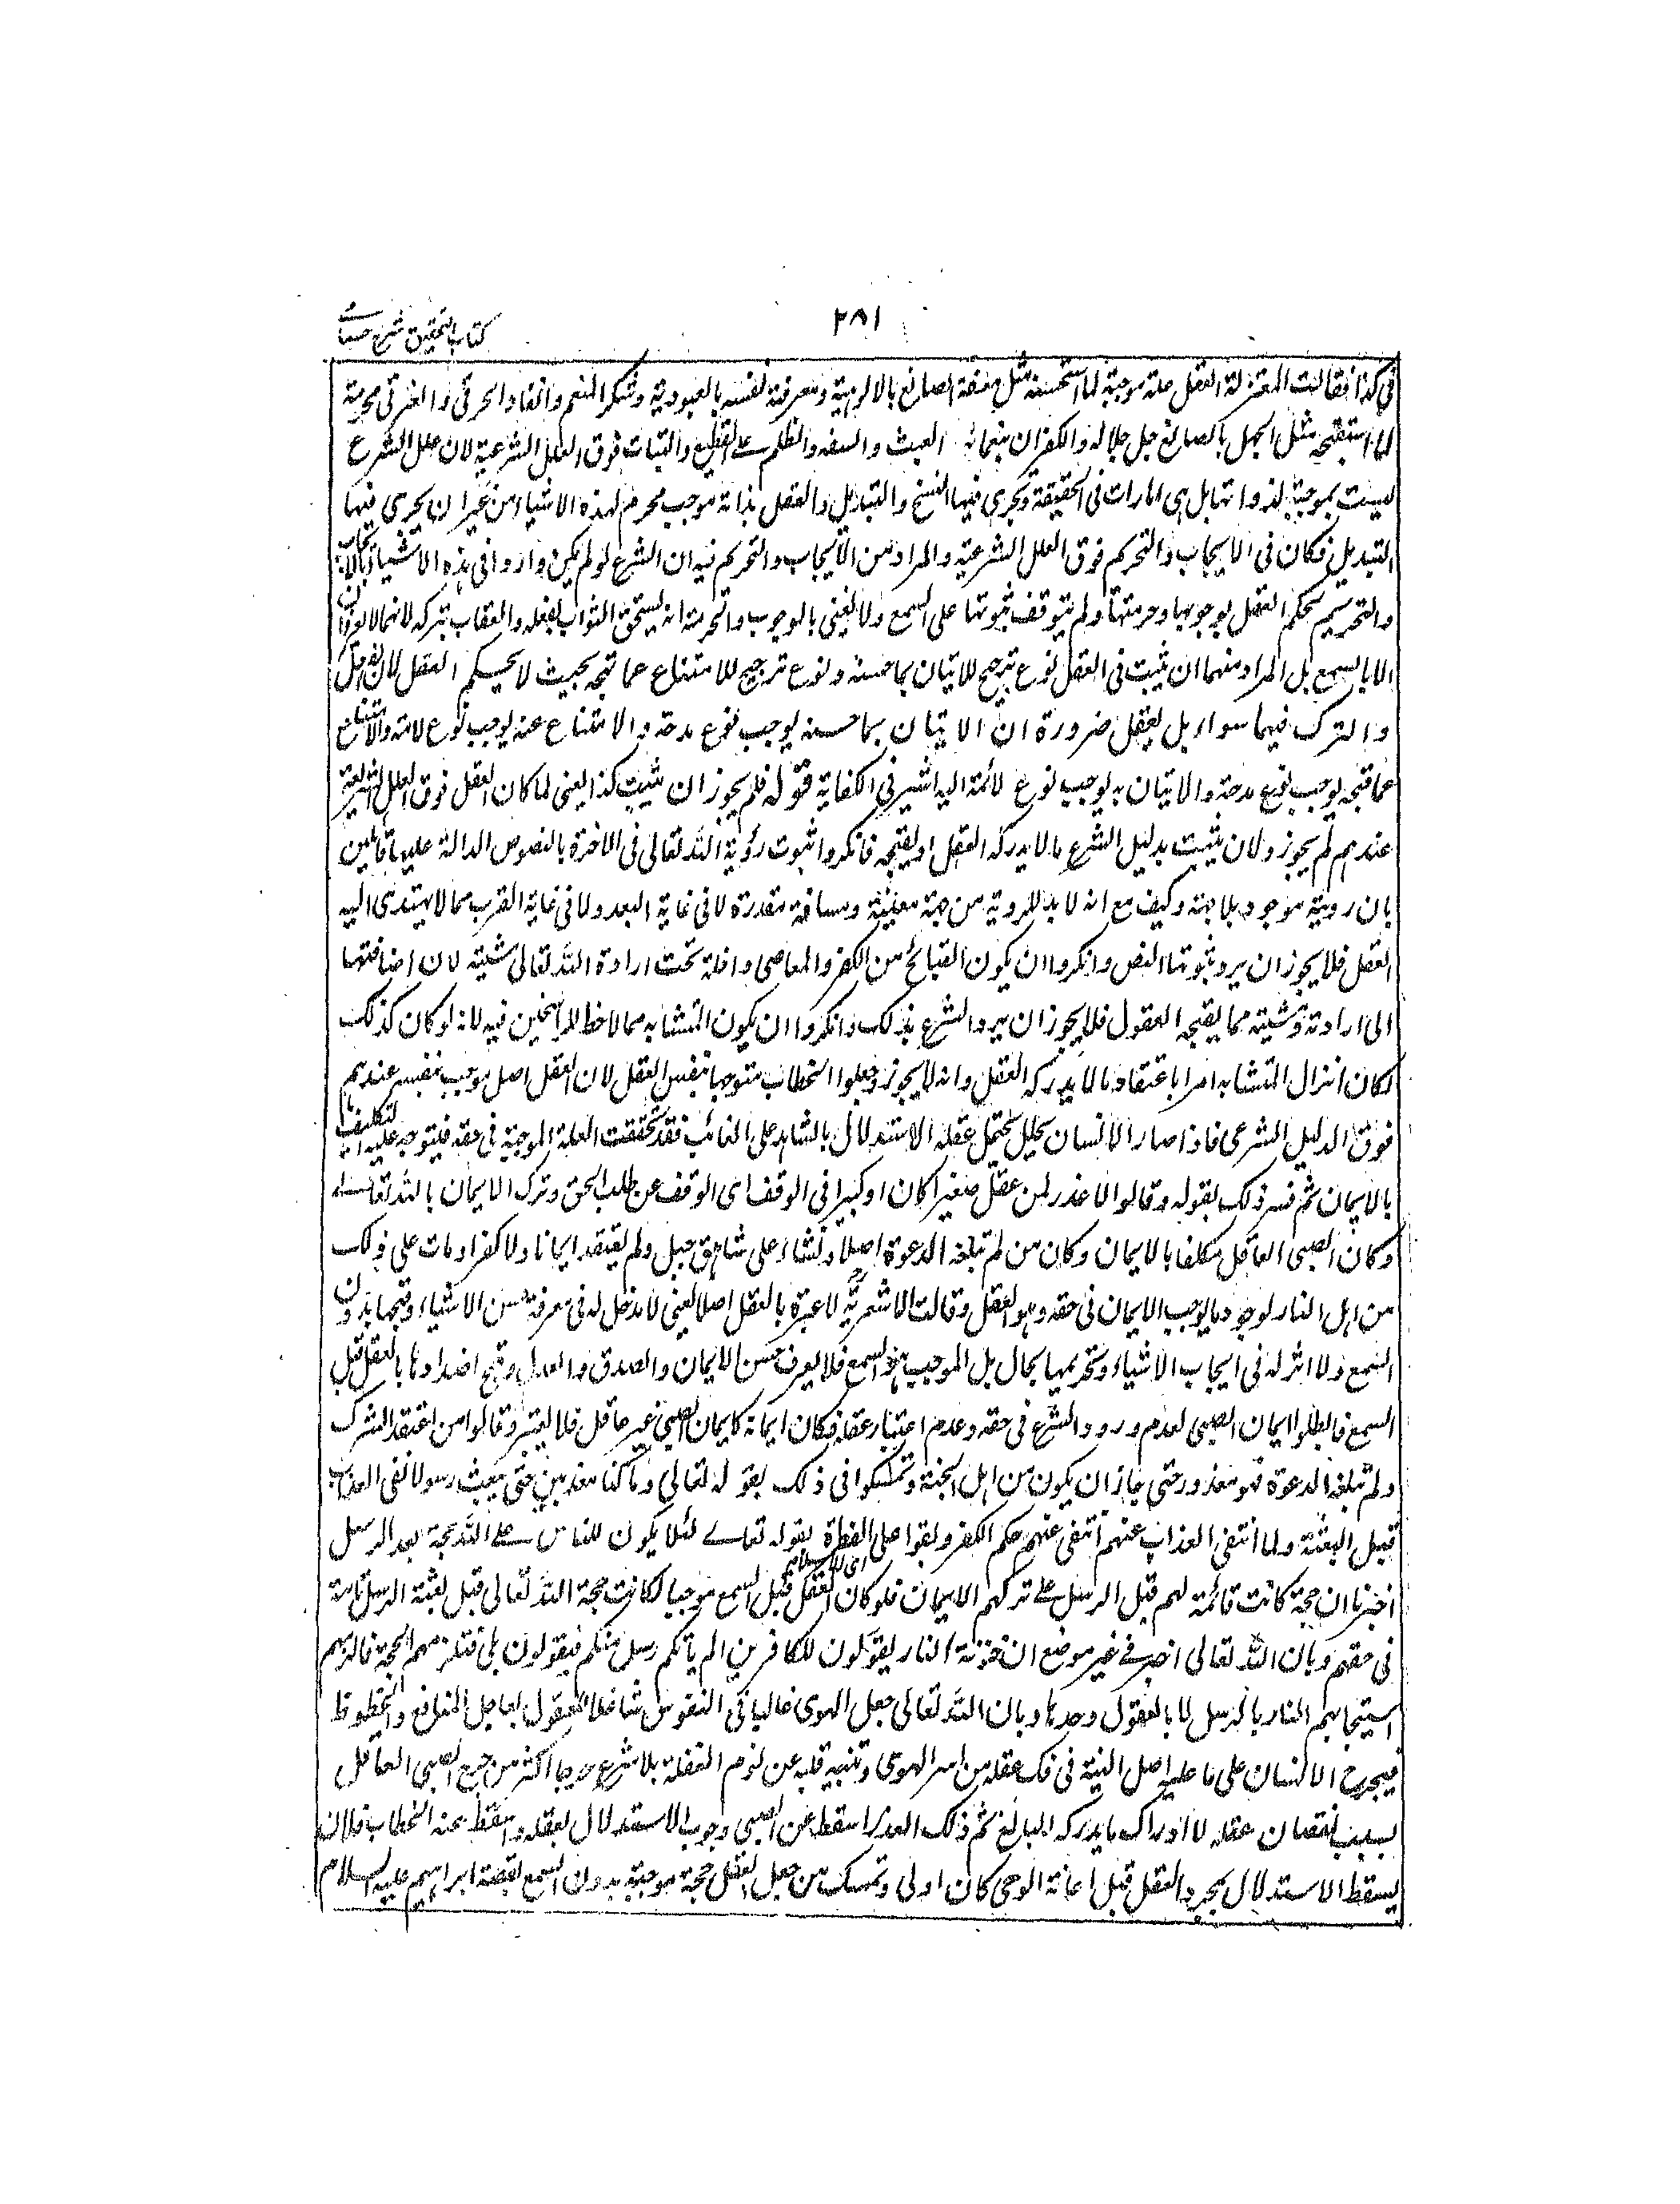 ٢٨١
كتاب التحقيق شرح حسامى
فى كذا فقالت المعتزلة العقل علة موجبة لما استحسنه مثل معرفة الصانع بالالوهية ومعرفة نفسه بالعبودية وشكر المنعم وانقاذ الحرقى والغرقى محرمة
لما استقبحه مثل الجهل بالصانع جل جلاله والكفران بنعمائه العبث والسفه والظلم على القطع والثبات فوق العلل الشرعية لان علل الشرع
ليست بموجبة لذواتها بل هى امارات فى الحقيقة وتجرى فيها النسخ والتبديل والعقل بذاته موجب محرم لهذه الاشياء من غير ان يجرى فيها
التبديل فكان فى الايجاب والتحريم فوق العلل الشرعية والمراد من الايجاب والتحريم فيه ان الشرع لو لم يكن واردا فى هذه الاشياء بالايجاب
والتحريم لحكم العقل بوجوبها وحرمتها ولم يتوقف ثبوتها على السمع ولا نعنى بالوجوب والحرمة انه يستحق الثواب بفعله والعقاب بتركه لانهما لا يعرفان
الا بالسمع بل المراد منهما ان يثبت فى العقل نوع ترجيح للاتيان بما حسنه ونوع ترجيح للامتناع عما قبحه بحيث لا يحكم العقل بان الفعل
والترك فيهما سواء بل يعقل ضرورة ان الاتيان بما حسنه يوجب نوع مدحة والامتناع عنه يوجب نوع لائمة والامتناع
عما قبحه يوجب نوع مدحة والاتيان به يوجب نوع لائمة اليه اشير فى الكفاية قوله فلم يجوز ان يثبت كذا يعنى لما كان العقل فوق العلل الشرعية
عندهم لم يجوزوا ان يثبت بدليل الشرع ما لا يدركه العقل او يقبحه فانكروا ثبوت رؤية الله تعالى فى الاخرة بالنصوص الدالة عليها قائلين
بان روية موجود بلا جهة وكيف مع انه لا بد للروية من جهة معينة ومسافة مقدرة لا فى غاية البعد ولا فى غاية القرب مما لا يهتدى اليه
العقل فلا يجوز ان يرد بثبوتها النص وانكروا ان يكون القبائح من الكفر والمعاصى داخلة تحت ارادة الله تعالى ومشيته لان اضافتها
الى ارادته ومشيته مما يقبحه العقول فلا يجوز ان يرد الشرع بذلك وانكروا ان يكون المتشابه مما لا حظ للراسخين فيه لانه لو كان كذلك
لكان انزال المتشابه امرا باعتقاد ما لا يدركه العقل وانه لا يجوز وجعلوا الخطاب متوجها بنفس العقل لان العقل اصل موجب بنفسه عندهم
فوق الدليل الشرعى فاذا صار الانسان بحال يحتمل عقله الاستدلال بالشاهد على الغائب فقد تحققت العلة الموجبة فى حقه فيتوجه عليه التكليف
بالايمان ثم فسر ذلك بقوله وقالوا لا عذر لمن عقل صغيرا كان او كبيرا فى الوقف اى الوقف عن طلب الحق وترك الايمان بالله تعالى
وكان الصبى العاقل مكلفا بالايمان وكان من لم تبلغه الدعوة اصلا ونشاء على شاهق جبل ولم يعتقد ايمانا ولا كفرا ومات على ذلك
من اهل النار لوجود ما يوجب الايمان فى حقه وهو العقل وقالت الاشعرية لا عبرة بالعقل اصلا يعنى لا مدخل له فى معرفة حسن الاشياء وقبحها بدون
السمع ولا اثر له فى ايجاب الاشياء وتحريمها بحال بل الموجب هو السمع فلا يعرف حسن الايمان والصدق والعدل وقبح اضدادها بالعقل قبل
السمع فابطلوا ايمان الصبى لعدم ورود الشرع فى حقه وعدم اعتبار عقله فكان ايمانه كايمان الصبى غير عاقل فلا يعتبر وقالوا من اعتقد الشرك
ولم تبلغه الدعوة فهو معذور حتى جاز ان يكون من اهل الجنة وتمسكوا فى ذلك بقوله تعالى وما كنا معذبين حتى نبعث رسولا نفى العذاب
قبيل البعثة ولما انتفى العذاب عنهم انتفى عنهم حكم الكفر وبقوا على الفطرة بقوله تعالى لئلا يكون للناس على الله حجة بعد الرسل
اى للاسلام
اخبرنا ان حجة كانت قائمة لهم قبل الرسل على تركهم الايمان فلو كان العقل قبل السمع موجبا لكانت حجة الله تعالى قبل بعثة الرسل تامة
فى حقهم وبان الله تعالى اخبر فى غير موضع ان خزنة النار يقولون للكافرين الم ياتكم رسل منكم فيقولون بلى فتلزمهم الحجة فالزمهم
استيجابهم النار بالرسل لا بالعقول وحدها وبان الله تعالى جعل الهوى غالبا فى النفوس شاغلا للعقول بعاجل المنافع والحظوظ
فيحرج الانسان على ما عليه اصل البنية فى فك عقله من اسر الهوى وتنبيه قلبه عن نوم الغفلة بلا شرع حرجا اكثر من حرج الصبى العاقل
بسبب نقصان عقله لا ادراك ما يدركه البالغ ثم ذلك العذر اسقط عن الصبى وجوب الاستدلال بعقله واسقط عنه الخطاب فلان
يسقط الاستدلال بمجرد العقل قبل اعانة الوحى كان اولى وتمسك من جعل العقل حجة موجبة بدون السمع بقصة ابراهيم عليه السلام